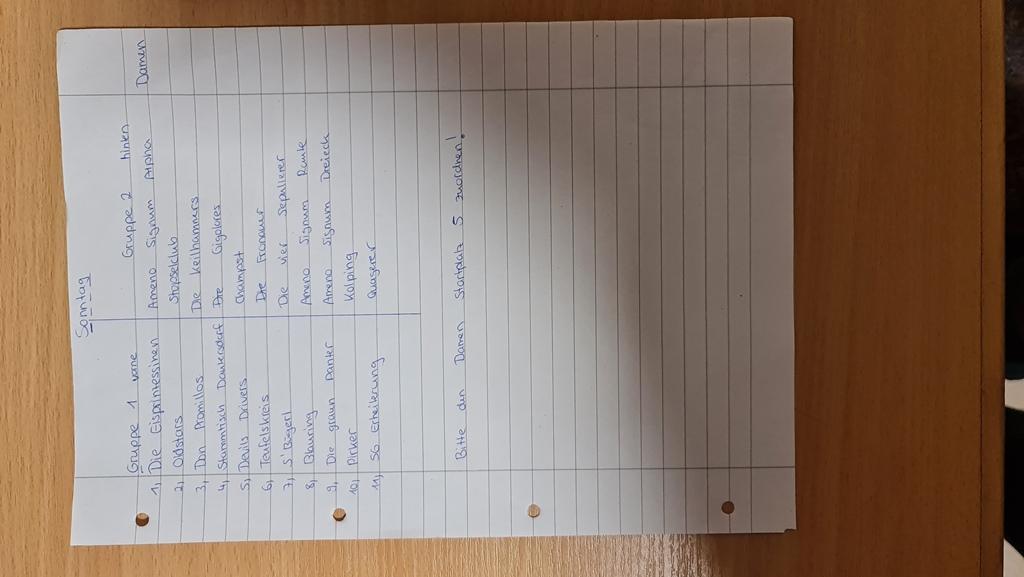 Sonntag
Gruppe 1 vorne Gruppe 2 hinten
1, Die Eisprintessinen Ameno Signum Alpha Damen
2, Oldstars Stopselclub
3, Don Promillos Die Keilhammers
4, Stammtisch Dautersdorf Die Gigolores
5, Devils Drivers Champot
6, Teufelskreis Die Fronauer
7, S'Bügerl Die vier Sepulierer
8, Blauring Ameno Signum Raute
9, Die graun Panter Ameno Signum Dreieck
10, Pirker Kolping
11, SG Erheiterung Quagerer
Bitte den Damen Startplatz 5 zuordnen!